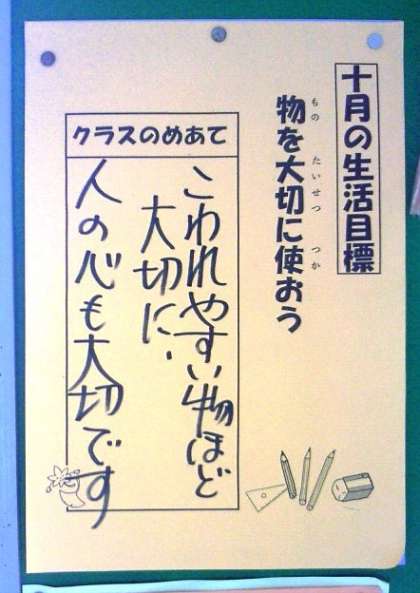 十月の生活目標
物を大切に使おう
もの たいせつ つか
クラスのめあて
こわれやすい物ほど
大切に.
人の心も大切です